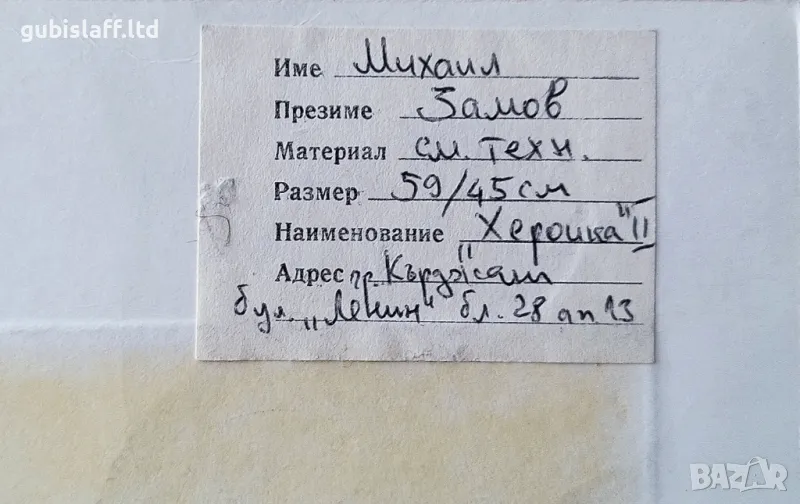 gubislaff.ltd
Име Михаил
Презиме Замов
Материал см. техн.
Размер 59/45 см
Наименование „Хероика" II
Адрес гр. Кърджали
бул. „Ленин" бл. 28 ап. 13
BAZAR